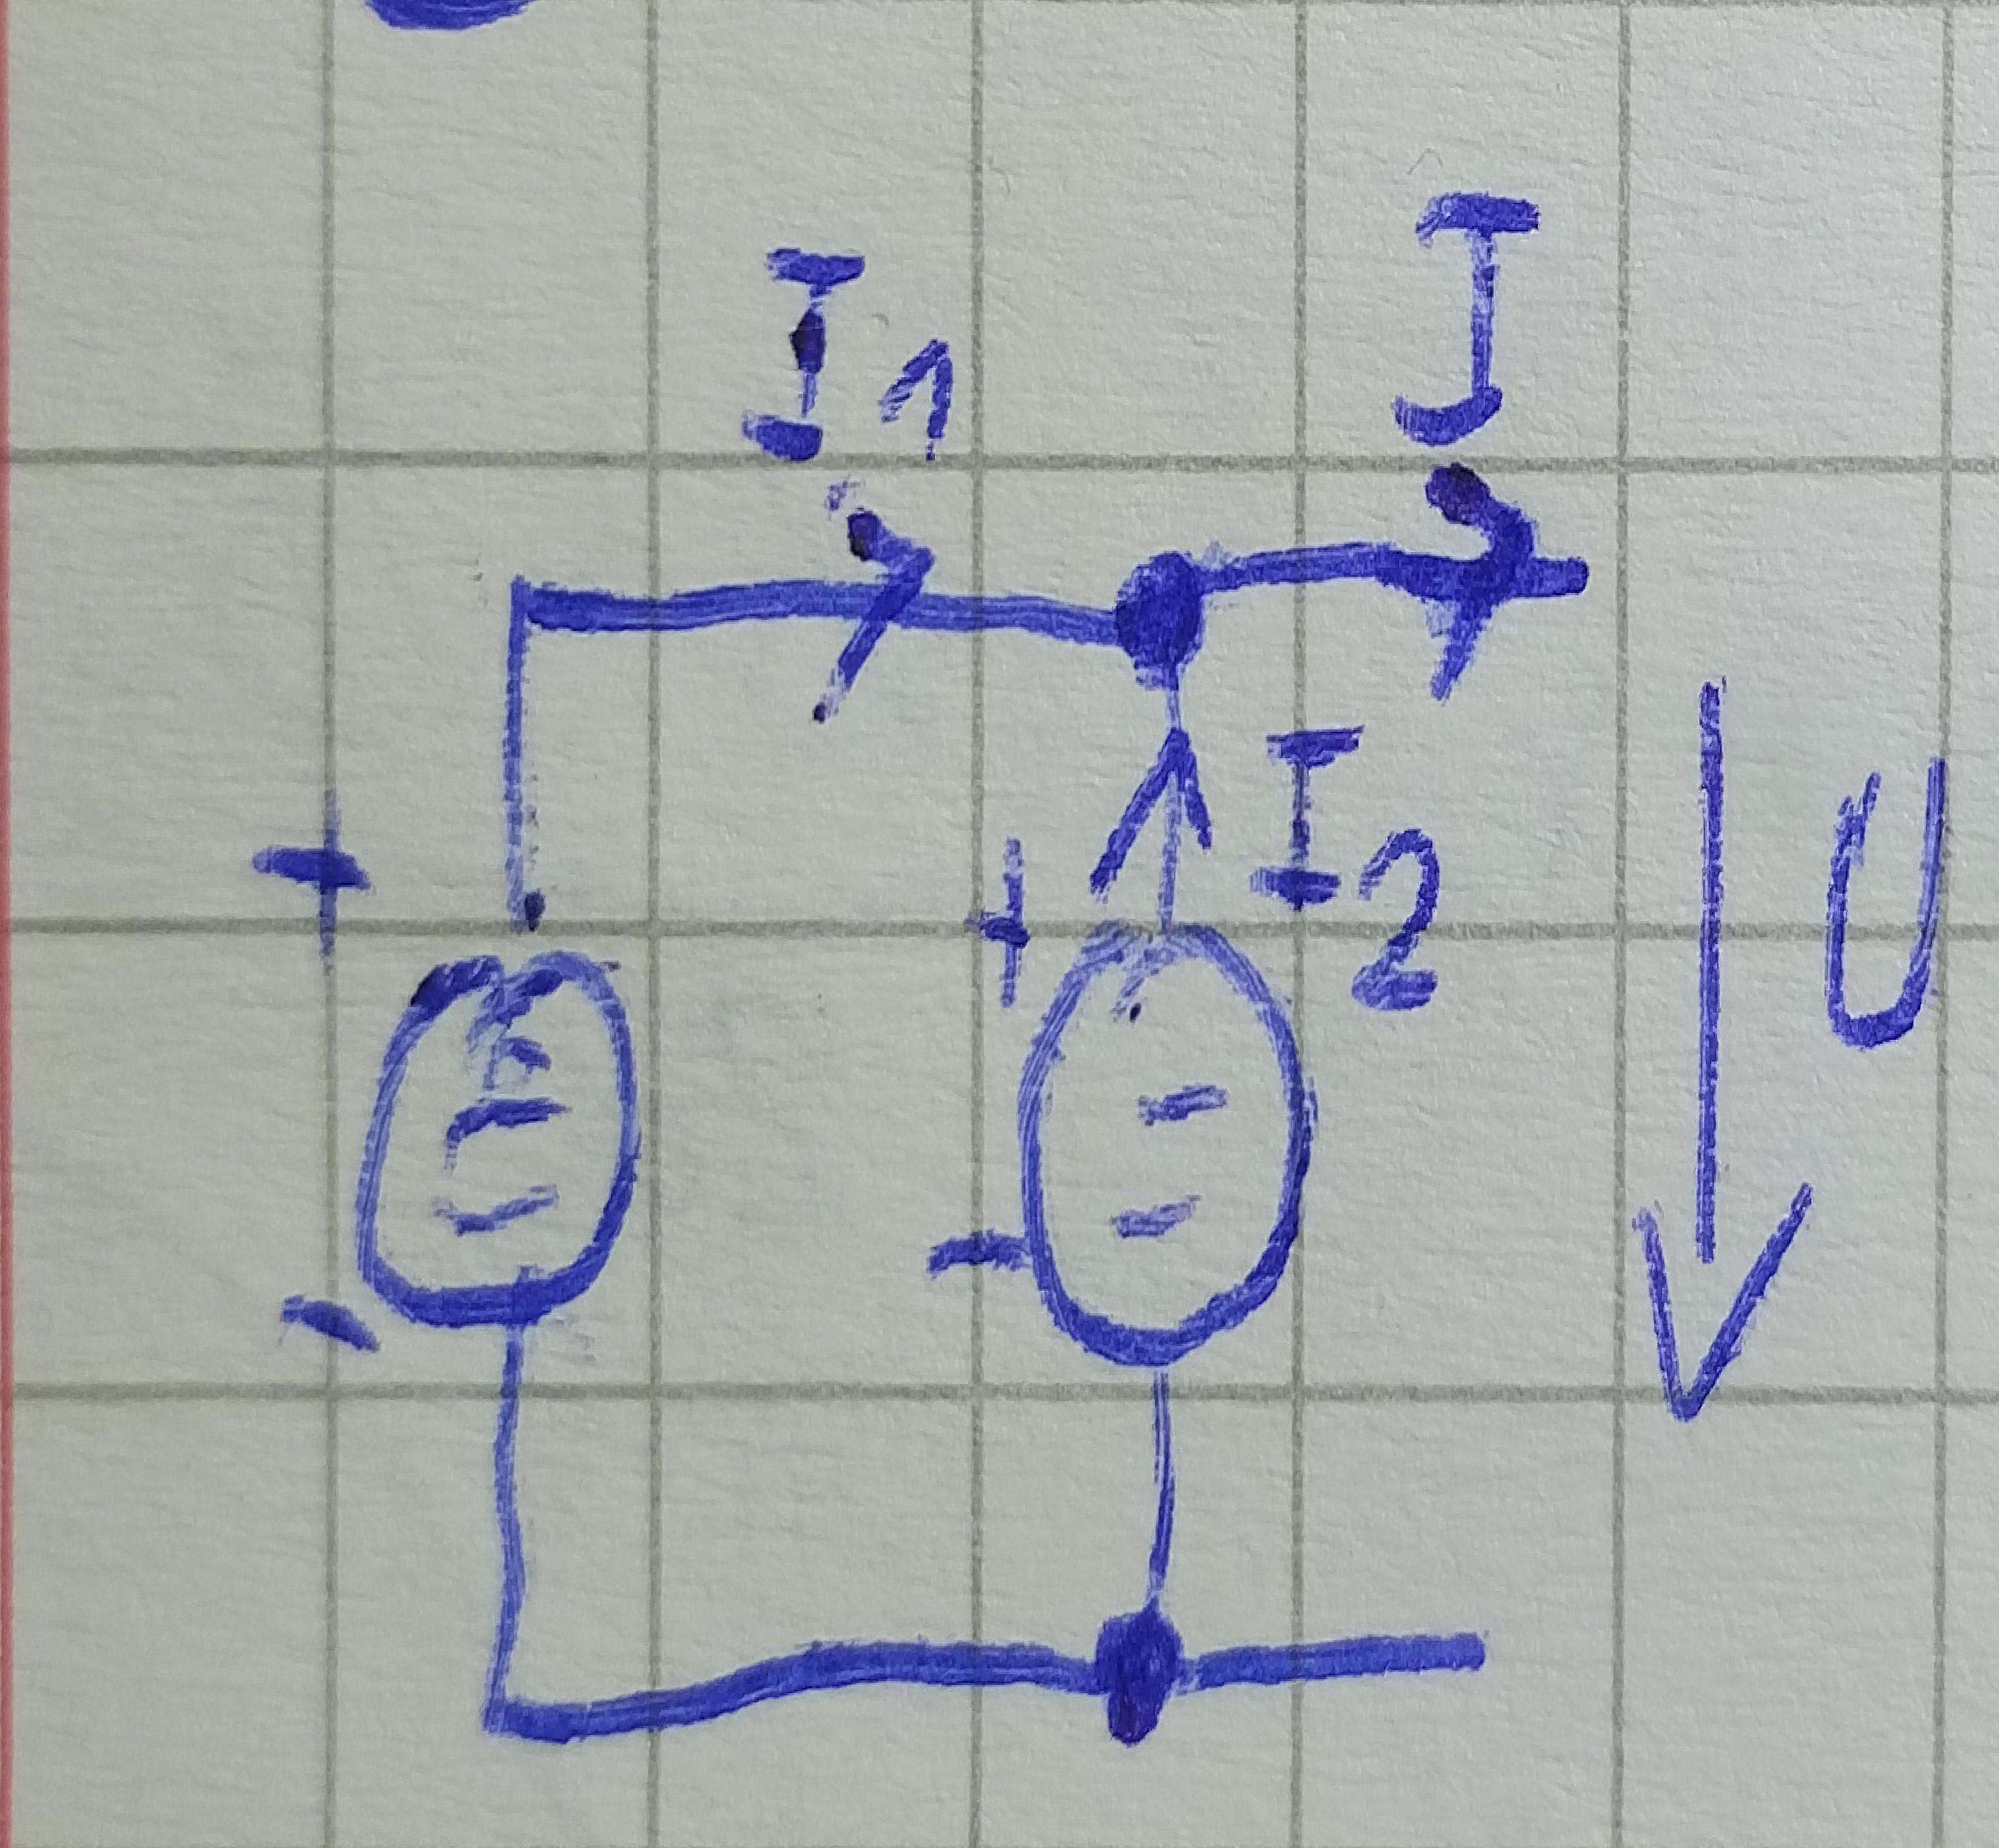 I1
I
+
+
I2
U
-
-